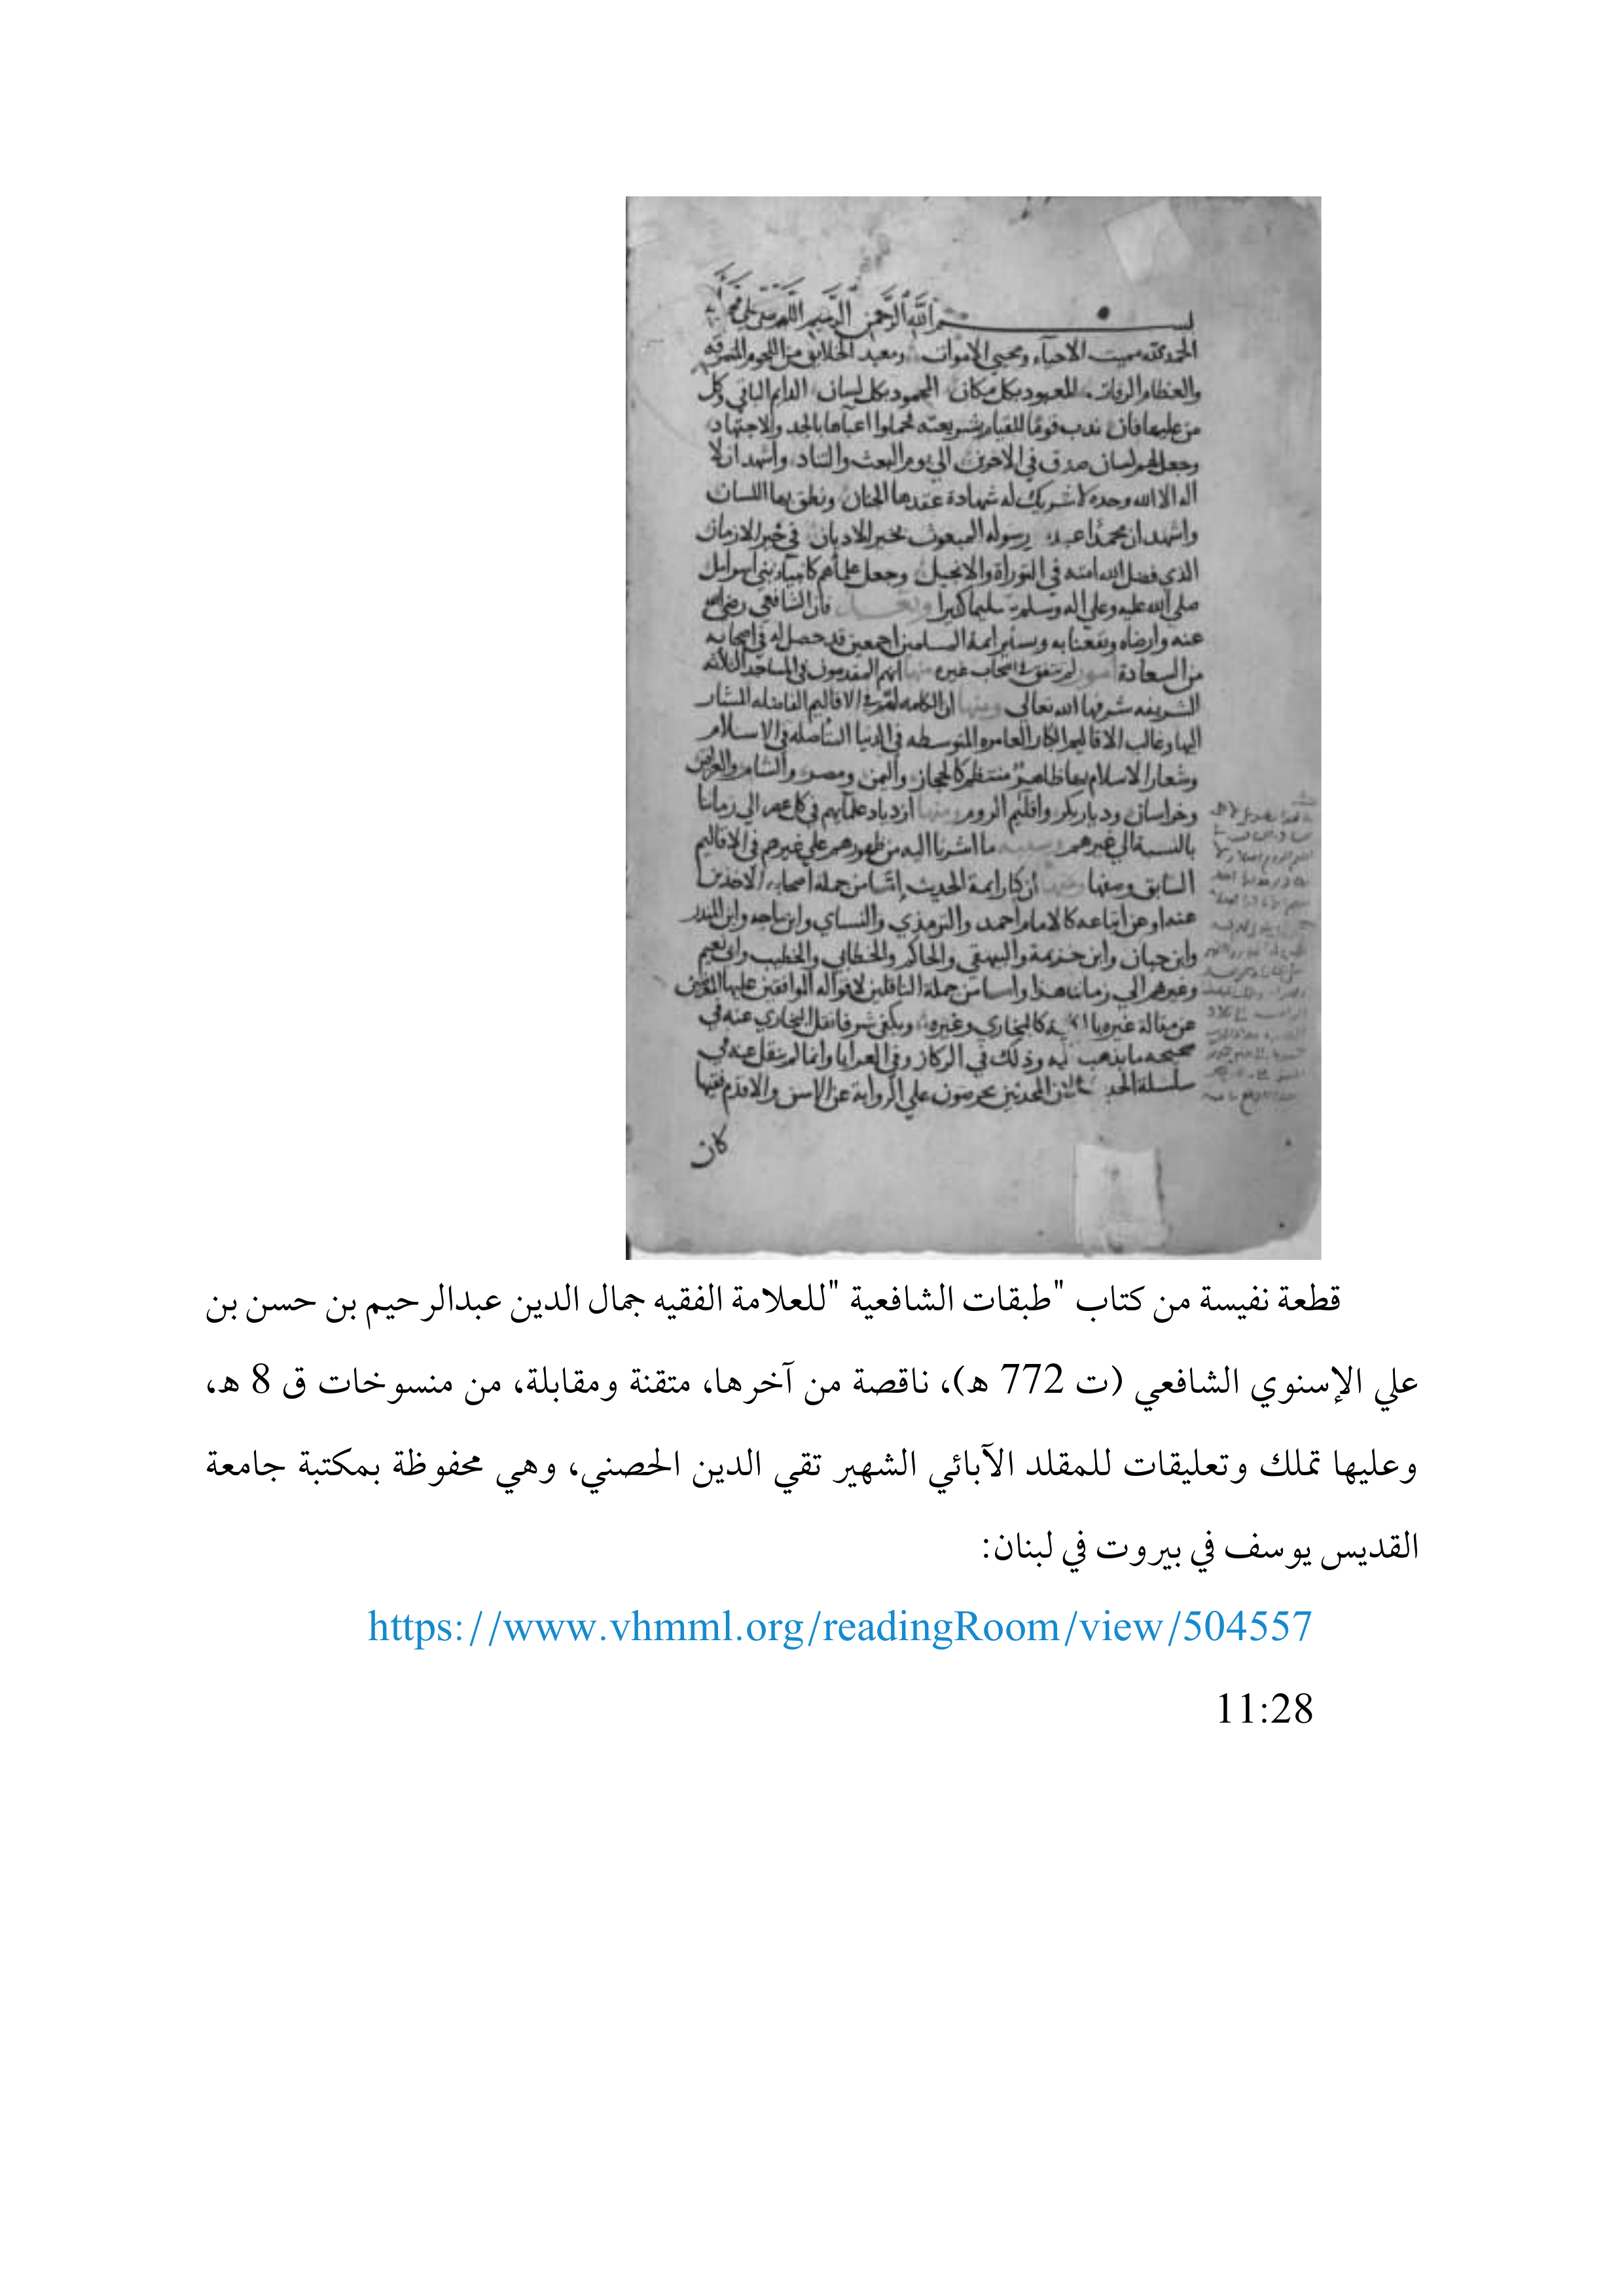 بسم الله الرحمن الرحيم اللهم صل على محمد
الحمد لله مميت الاحياء ومحيي الاموات ومعيد الخلايق من اللحوم المتمزقه
والعظام الرفات المعبود بكل مكان المحمود بكل لسان الدايم الباقي وكل
من عليها فان ندب قوما للقيام بشريعته فحملوا اعباها بالجد والاجتهاد
وجعل لهم لسان صدق في الاخرين الي يوم البعث والتناد واشهد ان لا
اله الا الله وحده لا شريك له شهادة عقدها الجنان ونطق بها اللسان
واشهد ان محمدا عبده رسوله المبعوث بخير الاديان في خير الازمان
الذي فضل الله امته في التوراة والانجيل وجعل علماهم كانبياء بني اسرايل
صلي الله عليه وعلي اله وسلم تسليما كثيرا وبعد فان الشافعي رضي الله
عنه وارضاه ونفعنا به وبساير ايمة المسلمين اجمعين قد حصل له في اصحابه
من السعادة امور لم تتفق في اصحاب غيره منها انهم المقدمون في المساجد الثلاثه
الشريفه شرفها الله تعالي ومنها ان الكلمه لهم في الاقاليم الفاضله المشار
اليها وغالب الاقاليم الكبار العامره المتوسطه في الدنيا المتاصله في الاسلام
وشعار الاسلام بها ظاهر منتظم كالحجاز واليمن ومصر والشام والعراق
وخراسان وديار بكر واقليم الروم ومنها ازدياد علمايهم في كل عصر الي زماننا
بالنسبة الي غيرهم وسببه ما اشرنا اليه من ظهورهم علي غيرهم في الاقاليم
السابق وصفها ومنها ان كبار ايمة الحديث من جملة اصحابه الاخذين
عنه او عن اتباعه كالامام احمد والترمذي والنساي وابن ماجه وابن المنذر
وابن حبان وابن خزيمة والبيهقي والحاكم والخطابي والخطيب وابي نعيم
وغيرهم الي زماننا هذا من جملة الناقلين لاقواله
عن مقالة غيره كالبخاري وغيره ويكفي شرفا نقل البخاري عنه في
صحيحه ما يذهب وذلك في الركاز وفي العرايا وانما لم ينقل عنه في
سلسلة المحدثين يحرصون علي الرواية عن الاسن والاقدم
كان
قطعة نفيسة من كتاب "طبقات الشافعية "للعلامة الفقيه جمال الدين عبدالرحيم بن حسن بن
علي الإسنوي الشافعي (ت 772 هـ)، ناقصة من آخرها، متقنة ومقابلة، من منسوخات ق 8 هـ،
وعليها تملك وتعليقات للمقلد الآبائي الشهير تقي الدين الحصني، وهي محفوظة بمكتبة جامعة
القديس يوسف في بيروت في لبنان:
https://www.vhmml.org/readingRoom/view/504557
11:28